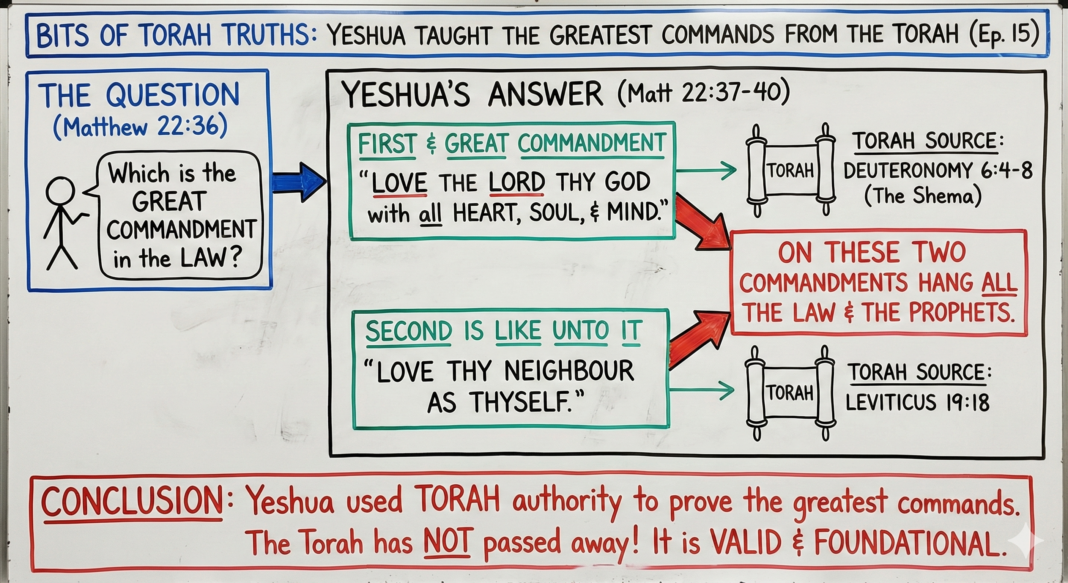 BITS OF TORAH TRUTHS: YESHUA TAUGHT THE GREATEST COMMANDS FROM THE TORAH (Ep. 15)
THE QUESTION
(Matthew 22:36)
Which is the
GREAT
COMMANDMENT
in the LAW?
YESHUA'S ANSWER (Matt 22:37-40)
FIRST & GREAT COMMANDMENT
"LOVE THE LORD THY GOD
with all HEART, SOUL, & MIND."
TORAH
TORAH SOURCE:
DEUTERONOMY 6:4-8
(The Shema)
ON THESE TWO
COMMANDMENTS HANG ALL
THE LAW & THE PROPHETS.
SECOND IS LIKE UNTO IT
"LOVE THY NEIGHBOUR
AS THYSELF."
TORAH
TORAH SOURCE:
LEVITICUS 19:18
CONCLUSION: Yeshua used TORAH authority to prove the greatest commands.
The Torah has NOT passed away! It is VALID & FOUNDATIONAL.